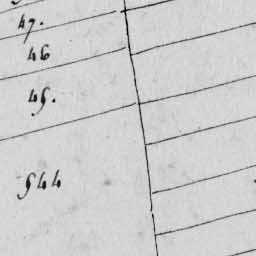 47.
46
45.
544